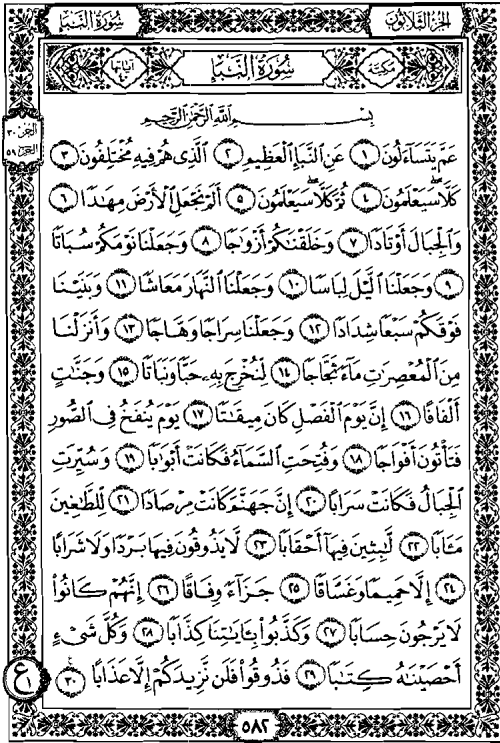 الجُزْءُ الثَّلَاثُونَ
سُورَةُ النَّبَإِ
مَكِّيَّة
سُورَةُ النَّبَإِ
آيَاتُهَا ٤٠
الجزء ٣٠
الحزب ٥٩
بِسْمِ ٱللَّهِ ٱلرَّحْمَٰنِ ٱلرَّحِيمِ
عَمَّ يَتَسَآءَلُونَ ١ عَنِ ٱلنَّبَإِ ٱلْعَظِيمِ ٢ ٱلَّذِى هُمْ فِيهِ مُخْتَلِفُونَ ٣
كَلَّا سَيَعْلَمُونَ ٤ ثُمَّ كَلَّا سَيَعْلَمُونَ ٥ أَلَمْ نَجْعَلِ ٱلْأَرْضَ مِهَٰدًا ٦
وَٱلْجِبَالَ أَوْتَادًا ٧ وَخَلَقْنَٰكُمْ أَزْوَٰجًا ٨ وَجَعَلْنَا نَوْمَكُمْ سُبَاتًا
٩ وَجَعَلْنَا ٱلَّيْلَ لِبَاسًا ١٠ وَجَعَلْنَا ٱلنَّهَارَ مَعَاشًا ١١ وَبَنَيْنَا
فَوْقَكُمْ سَبْعًا شِدَادًا ١٢ وَجَعَلْنَا سِرَاجًا وَهَّاجًا ١٣ وَأَنزَلْنَا
مِنَ ٱلْمُعْصِرَٰتِ مَآءً ثَجَّاجًا ١٤ لِّنُخْرِجَ بِهِۦ حَبًّا وَنَبَاتًا ١٥ وَجَنَّٰتٍ
أَلْفَافًا ١٦ إِنَّ يَوْمَ ٱلْفَصْلِ كَانَ مِيقَٰتًا ١٧ يَوْمَ يُنفَخُ فِى ٱلصُّورِ
فَتَأْتُونَ أَفْوَاجًا ١٨ وَفُتِحَتِ ٱلسَّمَآءُ فَكَانَتْ أَبْوَٰبًا ١٩ وَسُيِّرَتِ
ٱلْجِبَالُ فَكَانَتْ سَرَابًا ٢٠ إِنَّ جَهَنَّمَ كَانَتْ مِرْصَادًا ٢١ لِّلطَّٰغِينَ
مَـَٔابًا ٢٢ لَّٰبِثِينَ فِيهَآ أَحْقَابًا ٢٣ لَّا يَذُوقُونَ فِيهَا بَرْدًا وَلَا شَرَابًا
٢٤ إِلَّا حَمِيمًا وَغَسَّاقًا ٢٥ جَزَآءً وِفَاقًا ٢٦ إِنَّهُمْ كَانُوا۟
لَا يَرْجُونَ حِسَابًا ٢٧ وَكَذَّبُوا۟ بِـَٔايَٰتِنَا كِذَّابًا ٢٨ وَكُلَّ شَىْءٍ
أَحْصَيْنَٰهُ كِتَٰبًا ٢٩ فَذُوقُوا۟ فَلَن نَّزِيدَكُمْ إِلَّا عَذَابًا ٣٠
ع ١
٥٨٢